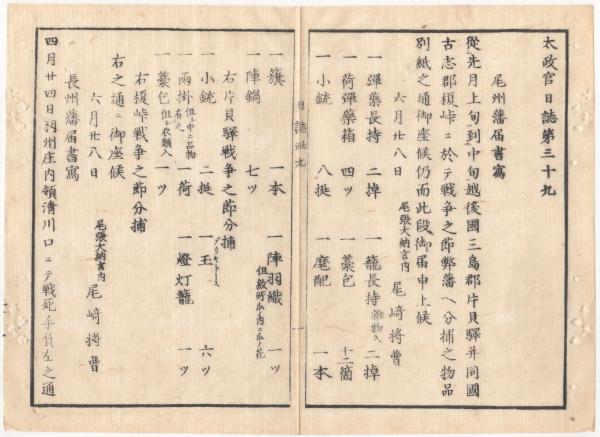 太政官日誌第三十九
尾州藩届書寫
從先月上旬到中旬越後國三島郡片貝驛并同國
古志郡榎峠ニ於テ戰争之節弊藩ヘ分捕之物品
別紙之通御座候仍而此段御届申上候
六月廿八日 尾張大納言内 尾﨑将曹
一彈藥長持 二掉 一籠長持 雜物入 二掉
一荷彈藥箱 四ツ 一藁包 十二箇
一小銃 八挺 一麾配 一本
日誌卅九 一
一籏 一本 一陣羽織 一ツ
但紋所瓜ノ内ニ瓜ノ花
一陣鍋 七ツ
右片貝驛戰争之節分捕
一小銃 二挺 一玉 六ツ
一雨掛 但シ中ニ品物有之 一荷 一燈灯籠 一ツ
一藁包 但シ衣類入 一ツ
右榎峠戰争之節分捕
右之通ニ御座候
六月廿八日 尾張大納言内 尾﨑将曹
長州藩届書寫
四月廿四日羽州庄内領清川口ニテ戰死手負左之通